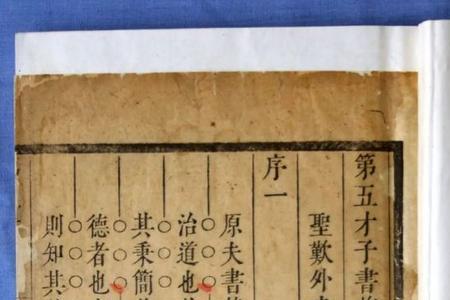 第五才子書
聖歎外
序一
原夫書
治道也
其秉簡
德者也
則知其